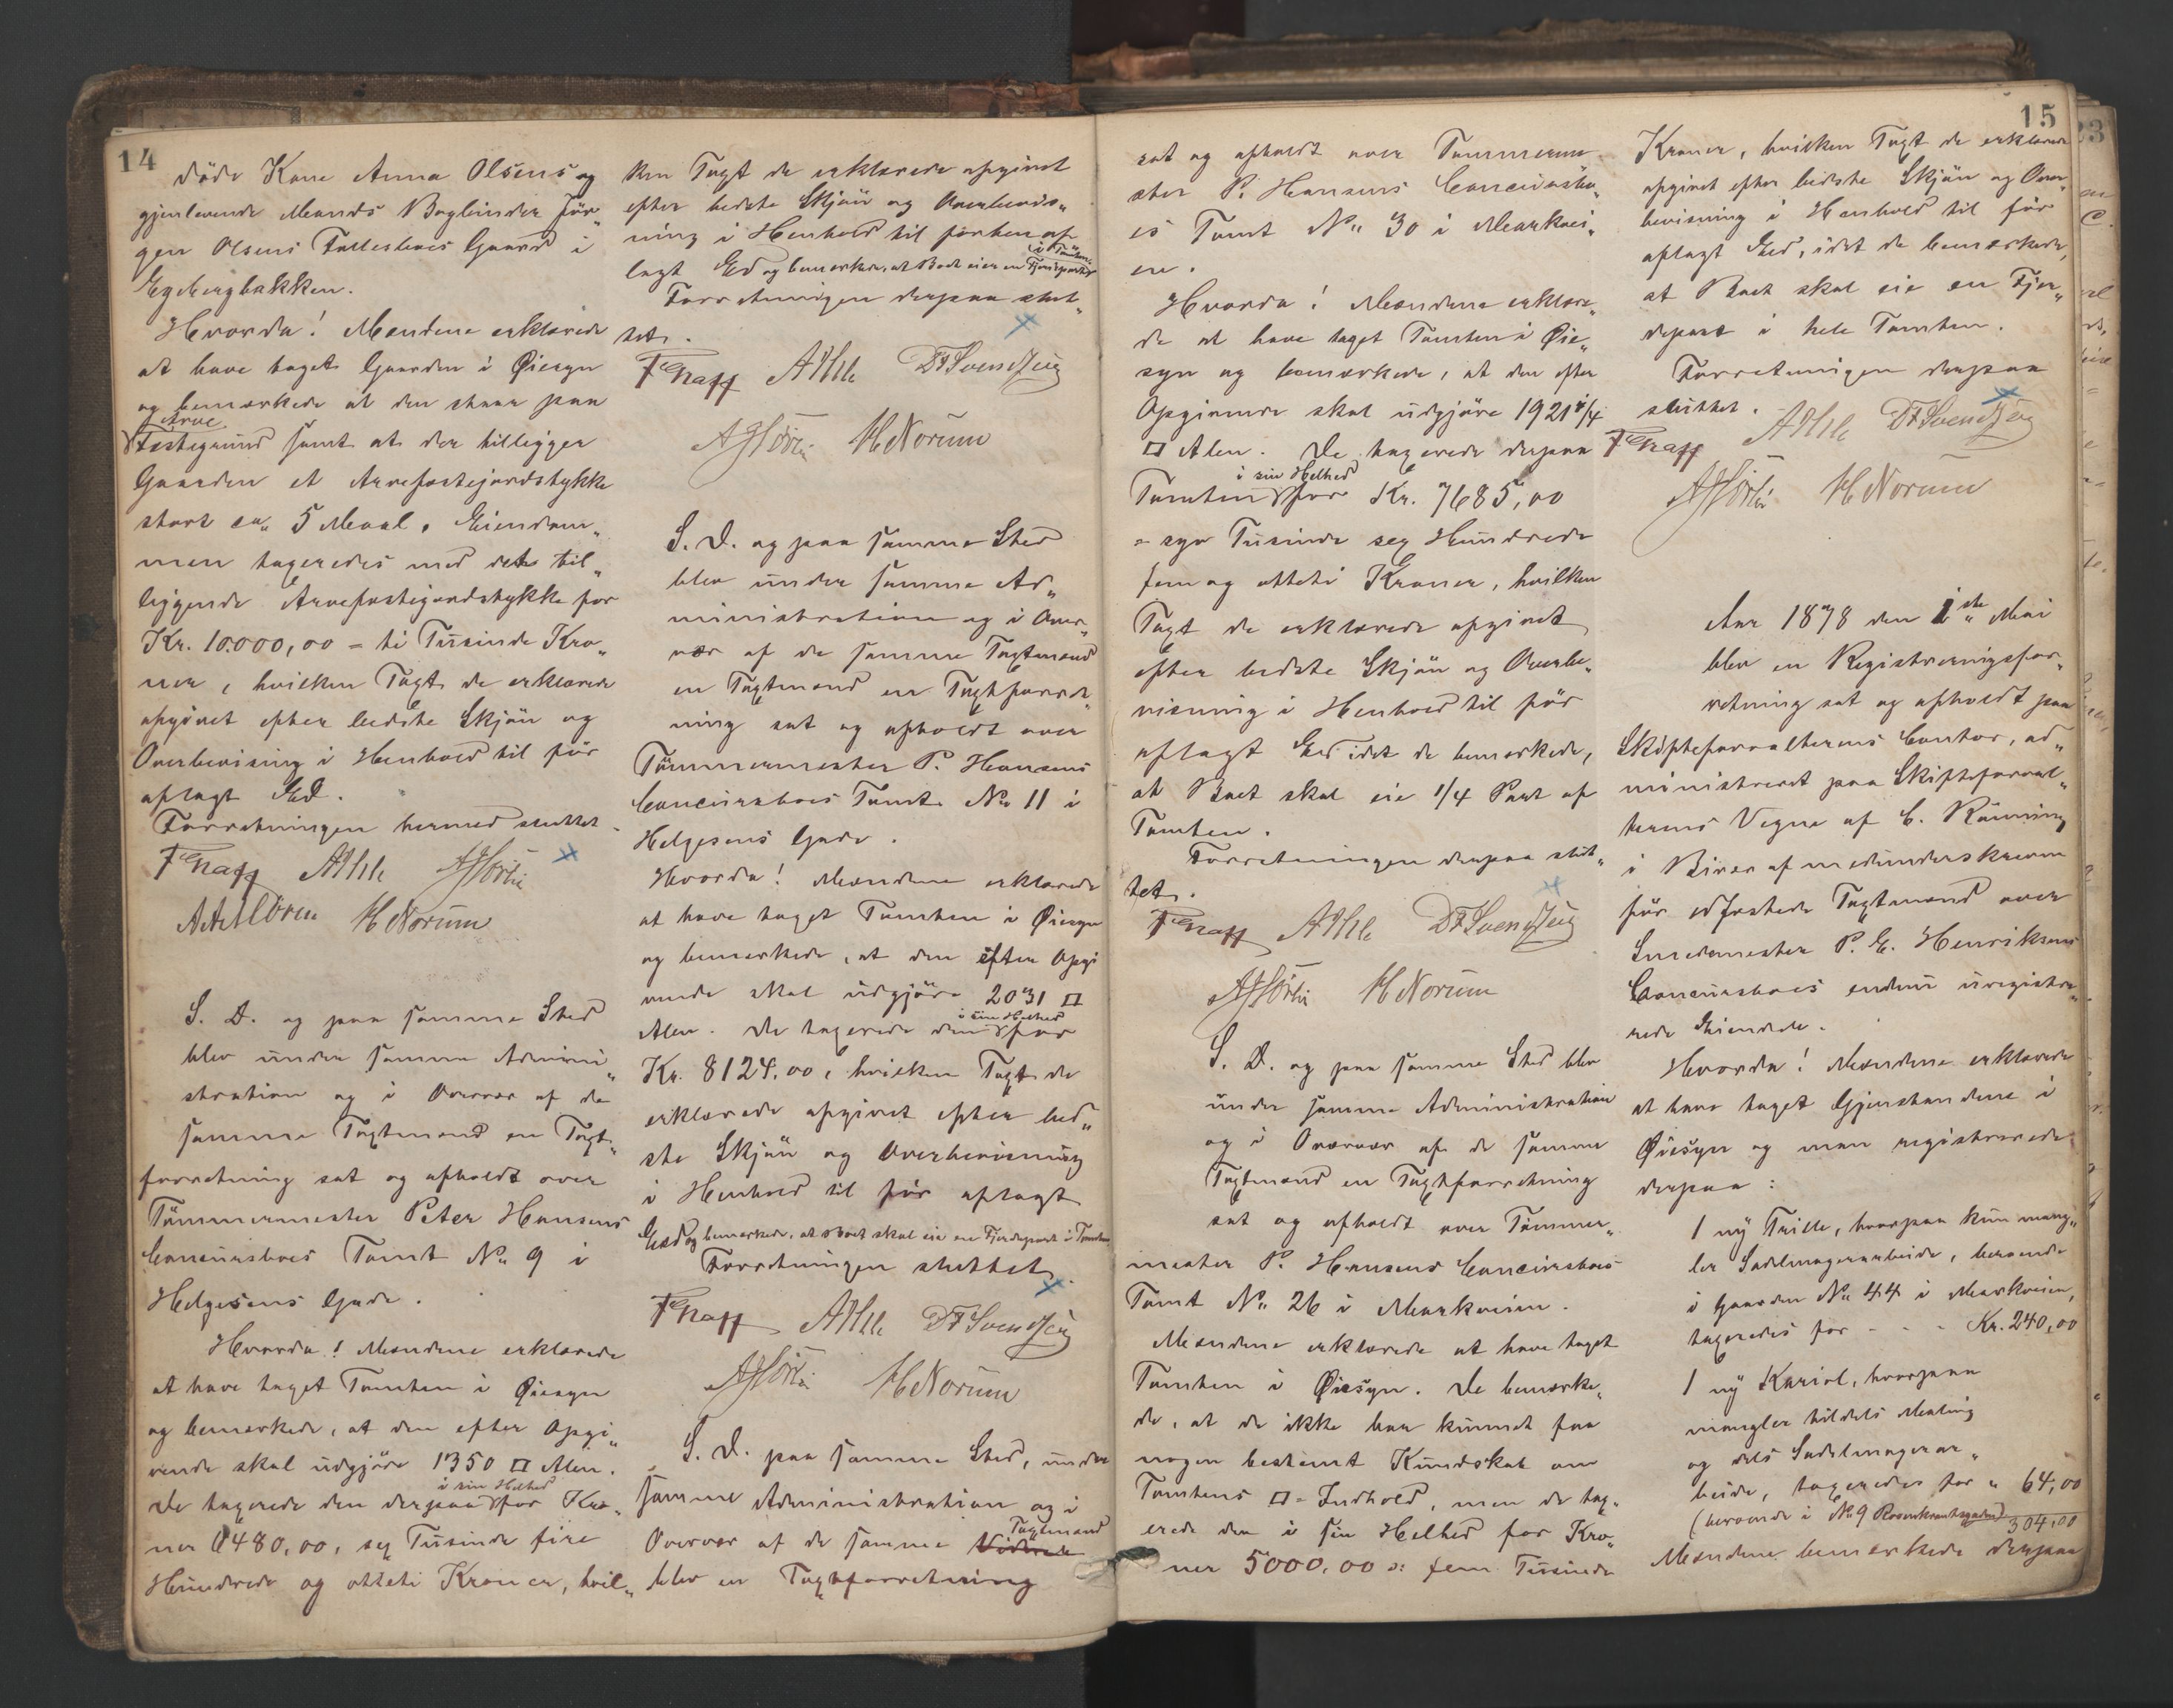 14
döde Kone Anna Olsens og
gjenlevende Mands Bogbinder Jör„
gen Olsens Fællesboes Gaard i
Egebergbakken.
Hvorda! Mændene erklærede
at have taget Gaarden i Øiesyn
og bemærkede at den staar paa
Arve
Festegrund samt at der tilligger
Gaarden et Arvefæstejordstykke
stort ca„ 5 Maal. Eiendom„
men taxeredes med dets til„
liggende Arvefæstejordstykke for
Kr. 10.000,00 = ti Tusinde Kro„
ner, hvilken Taxt de erklærede
afgivet efter bedste Skjön og
Overbevisning i Henhold til för
aflagt Ed.
Forretningen hermed sluttet.
H Norum
S. D. og paa samme Sted
blev under samme Admini„
stration og i Overvær af de
samme Taxtmænd en Taxt„
forretning sat og afholdt over
Tömmermester Peter Hansens
Concursboes Tomt No 9 i
Helgesens Gade.
Hvorda! Mændene erklærede
at have taget Tomten i Øiesyn
og bemærkede, at den efter Opgi„
vende skal udgjöre 1350 □ Alen.
i sin Helhed
De taxerede den derpaa for Kro„
ner 6480,00, sex Tusinde fire
Hundrede og otteti Kroner, hvil„
ken Taxt de erklærede afgivet
efter bedste Skjön og Overbevis„
ning i Henhold til forhen af„
i Tomten
lagt Ed og bemærkede, at Boet eier en Fjerdepart
Forretningen derpaa slut„
tet.
D F Svendsen
H Norum
S. D. og paa samme Sted
blev under samme Ad„
ministration og i Over„
vær af de samme Taxtmænd
en Taxtmænd en Taxtforret„
ning sat og afholdt over
Tömmermester P. Hansens
Concursboes Tomt No 11 i
Helgesens Gade.
Hvorda! Mændene erklærede
at have taget Tomten i Øiesyn
og bemærkede, at den efter Opgi
vende skal udgjöre 2031 □
i sin Helhed
Alen. De taxerede den for
Kr. 8124,00, hvilken Taxt de
erklærede afgivet efter bed„
ste Skjön og Overbevisning
i Henhold til för aflagt
Eed og bemærkede, at Boet skal eie en Fjerdepart i Tomten
Forretningen sluttet.
D F Svendsen
H Norum
S. D. paa samme Sted, under
samme Administration og i
Taxtmænd
Overvær af de samme
blev en Taxtforretning
15
sat og afholdt over Tømmerme
ster P. Hansens Concursbo„
es Tomt No 30 i Markvei„
en.
Hvorda! Mændene erklære„
de at have taget Tomten i Øie„
syn og bemærkede, at den efter
Opgivende skal udgjöre 1921 1/4
□ Alen. De taxerede derpaa
i sin Helhed
Tomten for Kr. 7685,00
= syv Tusinde sex Hundrede
fem og otteti Kroner, hvilken
Taxt de erklærede afgivet
efter bedste Skjön og Overbe„
visning i Henhold til för
aflagt Ed idet de bemærkede,
at Boet skal eie 1/4 Part af
Tomten.
Forretningen derpaa slut„
tet.
D F Svendsen
H Norum
S. D. og paa samme Sted blev
under samme Administration
og i Overvær af de samme
Taxtmænd en Taxtforretning
sat og afholdt over Tömmer„
mester P. Hansens Concursboes
Tomt No 26 i Markveien.
Mændene erklærede at have taget
Tomten i Øiesyn. De bemærke„
de, at de ikke har kunnet faa
nogen bestemt Kundskab om
Tomtens □=Indhold, men de tax„
erede den i sin Helhed for Kro„
ner 5000,00 ɔ: fem Tusinde
Kroner, hvilken Taxt de erklærede
afgivet efter bedste Skjön og Over„
bevisning i Henhold til för
aflagt Ed, idet de bemærkede,
at Boet skal eie en Fjer„
depart i hele Tomten.
Forretningen derpaa
sluttet.
D F Svendsen
H Norum
Aar 1878 den 1ste Mai
blev en Registreringsfor„
retning sat og afholdt paa
Skifteforvalterens Contor, ad„
ministreret paa Skifteforval„
terens Vegne af C. Rönning
i Biver af medunderskrevne
för edfæstede Taxtmænd over
Snedkermester P. E. Henriksens
Concursboes endnu uregistre„
rede Eiendele.
Hvorda! Mændene erklærede
at have taget Gjenstandene i
Øiesyn og man registrerede
derpaa:
1 ny Trille, hvorpaa kun mang„
ler Sadelmagerarbeide, beroende
i Gaarden No 44 i Markveien,
taxeredes for - - - Kr. 240,00
1 ny Kariol, hvorpaa
mangler tildels Maling
og dels Sadelmagerar„
beide, taxeredes for „ 64,00
(beroende i No 9 Rosenkrantzgaden) 304,00
Mændene bemærkede derpaa
23